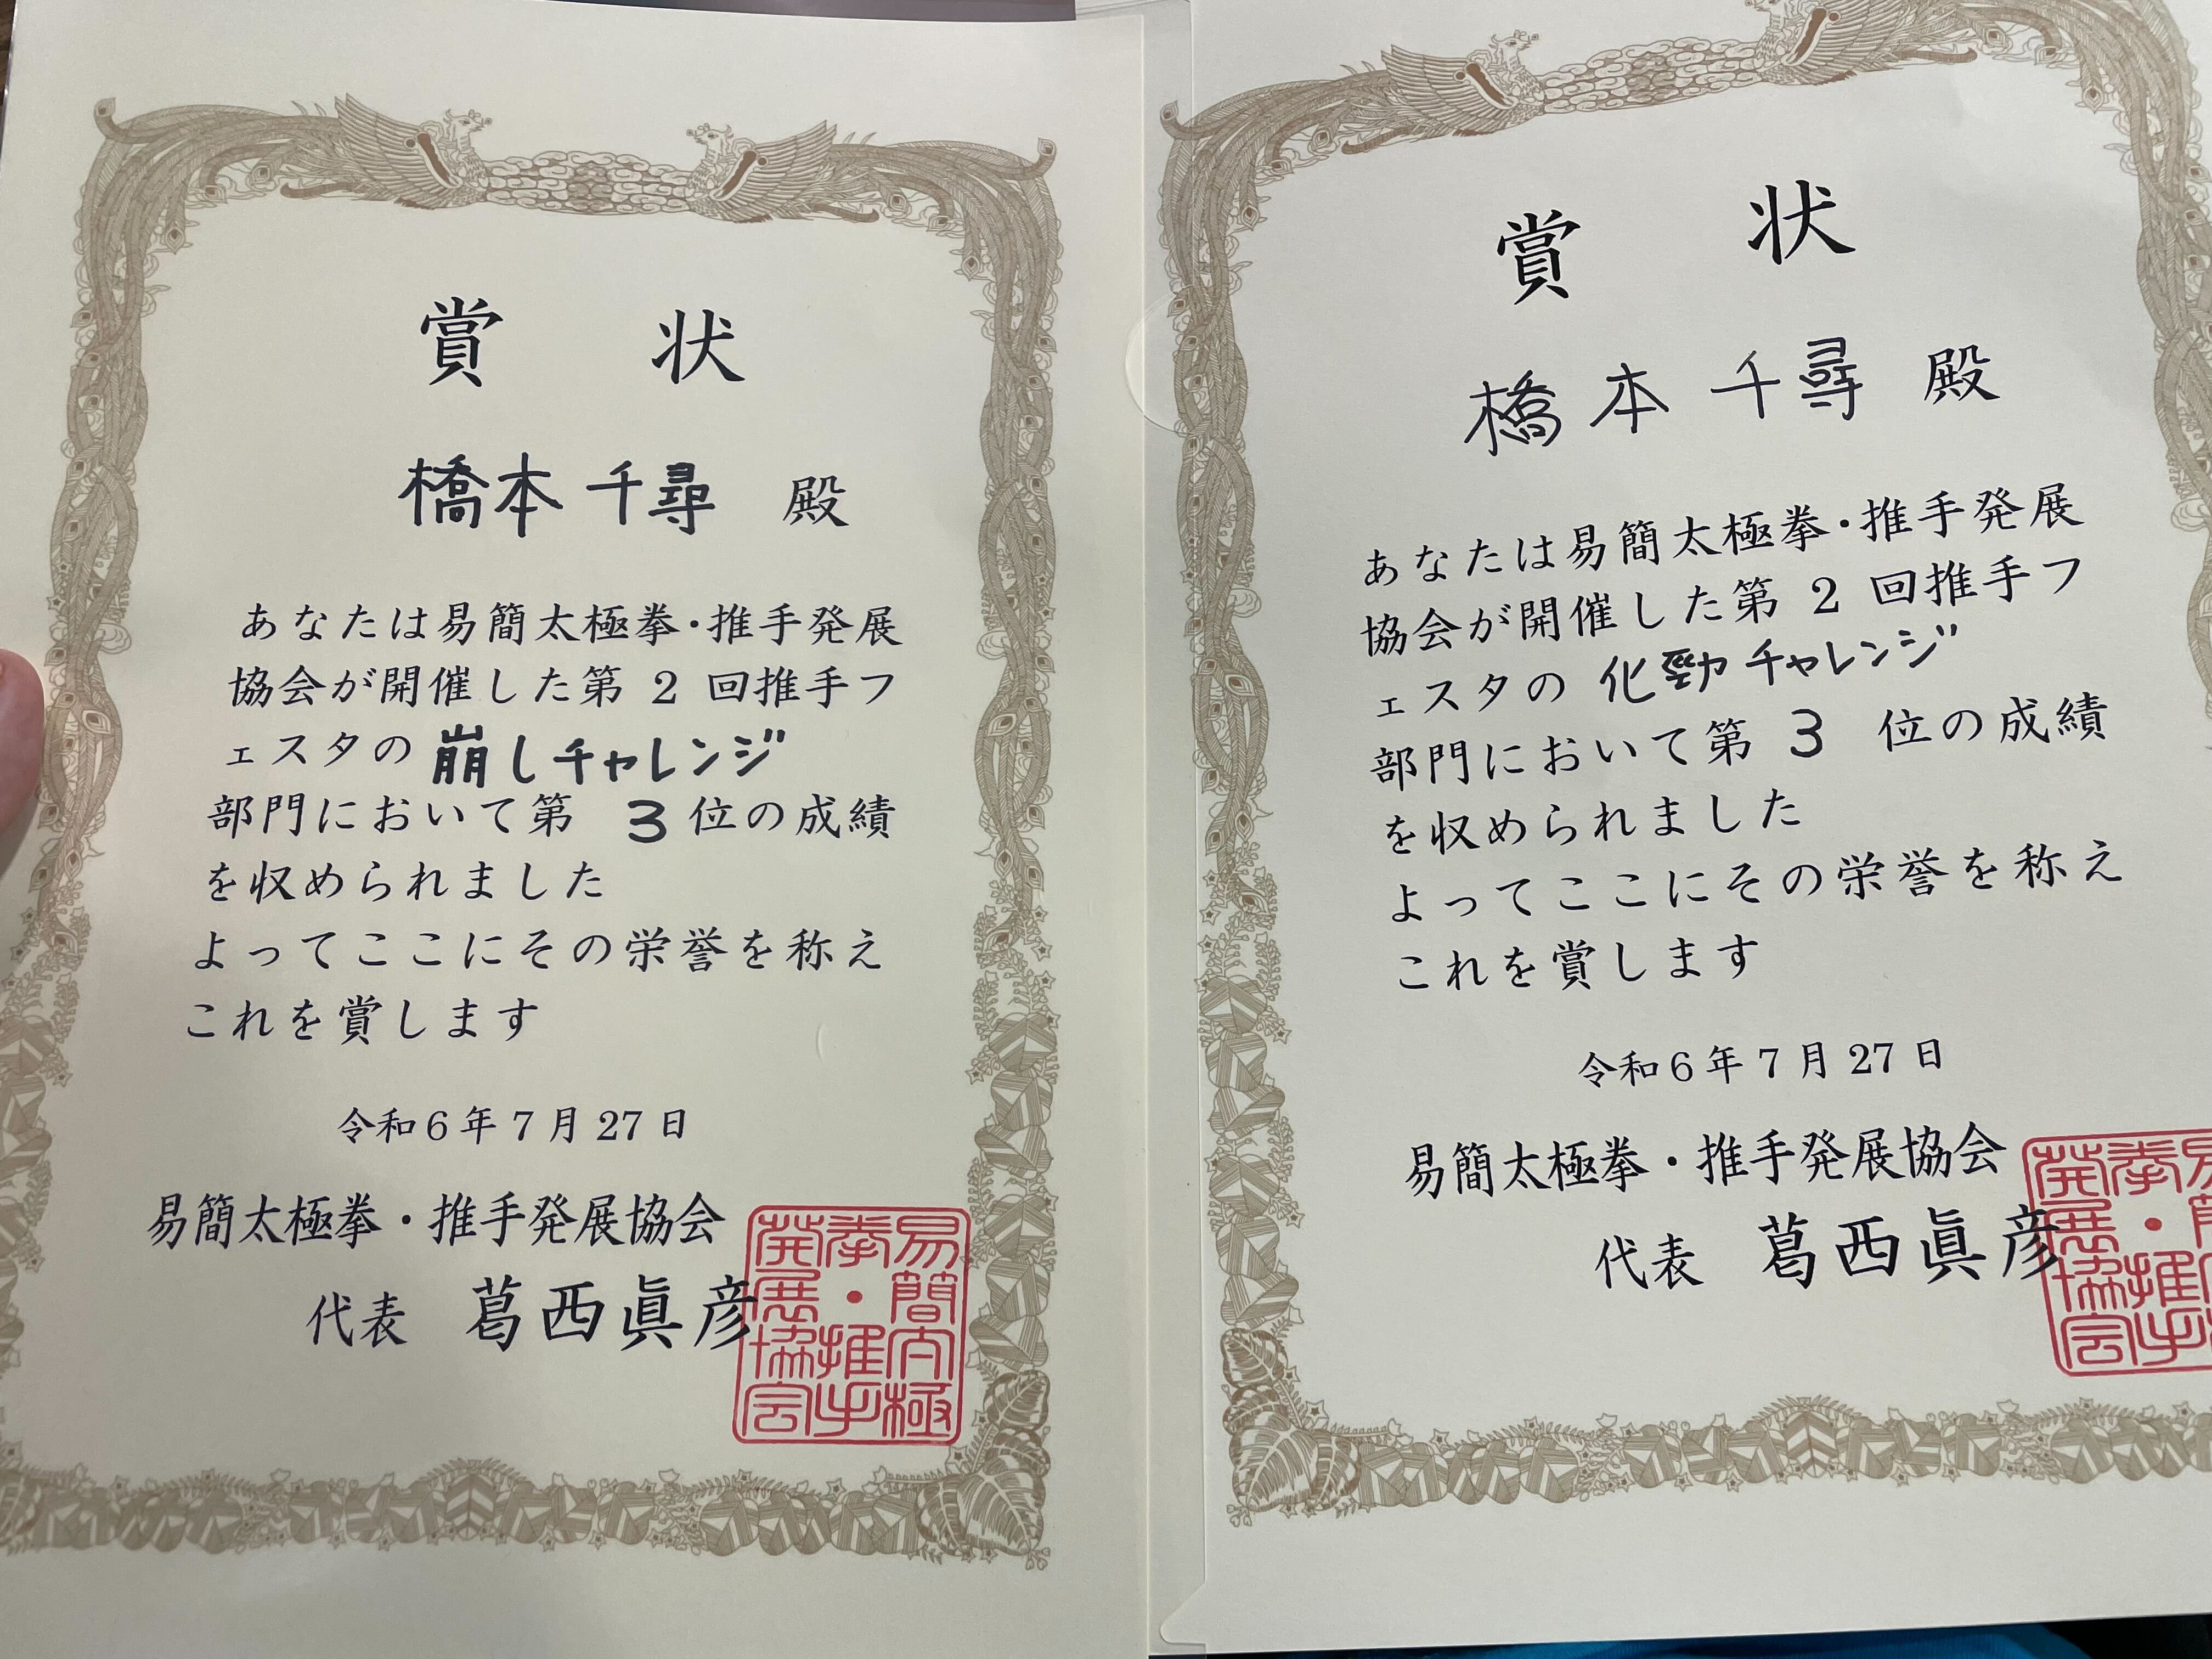 賞 状
橋本 千尋 殿
あなたは易簡太極拳・推手発展
協会が開催した第 2 回推手フ
ェスタの 崩しチャレンジ
部門において第 3 位の成績
を収められました
よってここにその栄誉を称え
これを賞します
令和6年7月27日
易簡太極拳・推手発展協会
代表 葛西眞彦
易簡太極
拳・推手
発展協会
賞 状
橋本 千尋 殿
あなたは易簡太極拳・推手発展
協会が開催した第 2 回推手フ
ェスタの 化勁チャレンジ
部門において第 3 位の成績
を収められました
よってここにその栄誉を称え
これを賞します
令和6年7月27日
易簡太極拳・推手発展協会
代表 葛西眞彦
拳・推手
発展協会